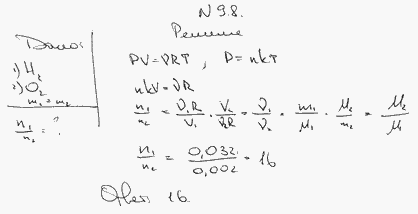 N 9.8.
Решение
Дано:
1) H₂
2) O₂
m₁ = m₂
n₁/n₂ = ?
PV = νRT, P = nkT
nkV = νR
n₁/n₂ = ν₁R/V₁ · V₂/ν₂R = ν₁/ν₂ · m₁/μ₁ · μ₂/m₂ = μ₂/μ₁
n₁/n₂ = 0,032/0,002 = 16
Ответ: 16